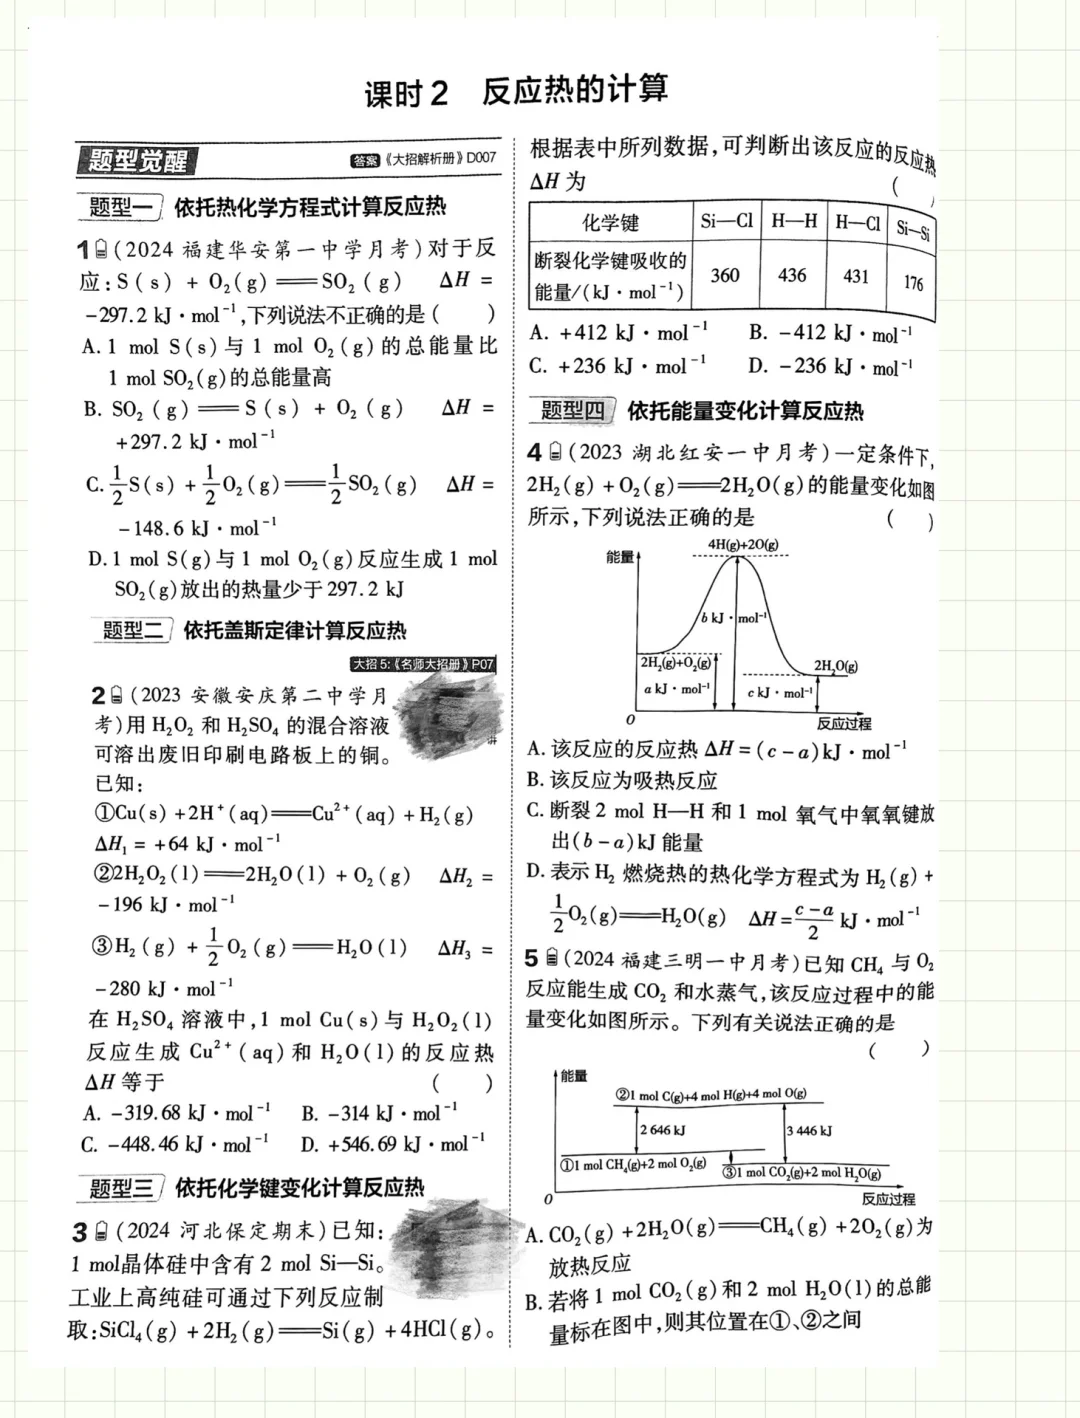 课时2 反应热的计算
题型觉醒 答案《大招解析册》D007
题型一 依托热化学方程式计算反应热
1 (2024 福建华安第一中学月考)对于反
应:S(s) + O₂(g)══SO₂(g) ΔH =
-297.2 kJ·mol⁻¹,下列说法不正确的是( )
A. 1 mol S(s)与 1 mol O₂(g)的总能量比
1 mol SO₂(g)的总能量高
B. SO₂(g)══S(s) + O₂(g) ΔH =
+297.2 kJ·mol⁻¹
C. 1/2S(s) + 1/2O₂(g)══1/2SO₂(g) ΔH =
-148.6 kJ·mol⁻¹
D. 1 mol S(g)与 1 mol O₂(g)反应生成 1 mol
SO₂(g)放出的热量少于 297.2 kJ
题型二 依托盖斯定律计算反应热
大招5:《名师大招册》P07
2 (2023 安徽安庆第二中学月
考)用 H₂O₂ 和 H₂SO₄ 的混合溶液
可溶出废旧印刷电路板上的铜。
已知:
①Cu(s) +2H⁺(aq)══Cu²⁺(aq) + H₂(g)
ΔH₁ = +64 kJ·mol⁻¹
②2H₂O₂(l)══2H₂O(l) + O₂(g) ΔH₂ =
-196 kJ·mol⁻¹
③H₂(g) + 1/2O₂(g)══H₂O(l) ΔH₃ =
-280 kJ·mol⁻¹
在 H₂SO₄ 溶液中,1 mol Cu(s)与 H₂O₂(l)
反应生成 Cu²⁺(aq)和 H₂O(l)的反应热
ΔH 等于 ( )
A. -319.68 kJ·mol⁻¹ B. -314 kJ·mol⁻¹
C. -448.46 kJ·mol⁻¹ D. +546.69 kJ·mol⁻¹
题型三 依托化学键变化计算反应热
3 (2024 河北保定期末)已知:
1 mol晶体硅中含有 2 mol Si—Si。
工业上高纯硅可通过下列反应制
取:SiCl₄(g) +2H₂(g)══Si(g) +4HCl(g)。
根据表中所列数据,可判断出该反应的反应热
ΔH 为 ( )
化学键 Si—Cl H—H H—Cl Si—Si
断裂化学键吸收的
能量/(kJ·mol⁻¹) 360 436 431 176
A. +412 kJ·mol⁻¹ B. -412 kJ·mol⁻¹
C. +236 kJ·mol⁻¹ D. -236 kJ·mol⁻¹
题型四 依托能量变化计算反应热
4 (2023 湖北红安一中月考)一定条件下,
2H₂(g) +O₂(g)══2H₂O(g)的能量变化如图
所示,下列说法正确的是 ( )
能量 4H(g)+2O(g)
b kJ·mol⁻¹
2H₂(g)+O₂(g) 2H₂O(g)
a kJ·mol⁻¹ c kJ·mol⁻¹
O 反应过程
A. 该反应的反应热 ΔH = (c - a)kJ·mol⁻¹
B. 该反应为吸热反应
C. 断裂 2 mol H—H 和 1 mol 氧气中氧氧键放
出(b - a)kJ 能量
D. 表示 H₂ 燃烧热的热化学方程式为 H₂(g) +
1/2O₂(g)══H₂O(g) ΔH = (c-a)/2 kJ·mol⁻¹
5 (2024 福建三明一中月考)已知 CH₄ 与 O₂
反应能生成 CO₂ 和水蒸气,该反应过程中的能
量变化如图所示。下列有关说法正确的是
( )
能量
②1 mol C(g)+4 mol H(g)+4 mol O(g)
2 646 kJ 3 446 kJ
①1 mol CH₄(g)+2 mol O₂(g) ③1 mol CO₂(g)+2 mol H₂O(g)
O 反应过程
A. CO₂(g) +2H₂O(g)══CH₄(g) +2O₂(g)为
放热反应
B. 若将 1 mol CO₂(g)和 2 mol H₂O(l)的总能
量标在图中,则其位置在①、②之间